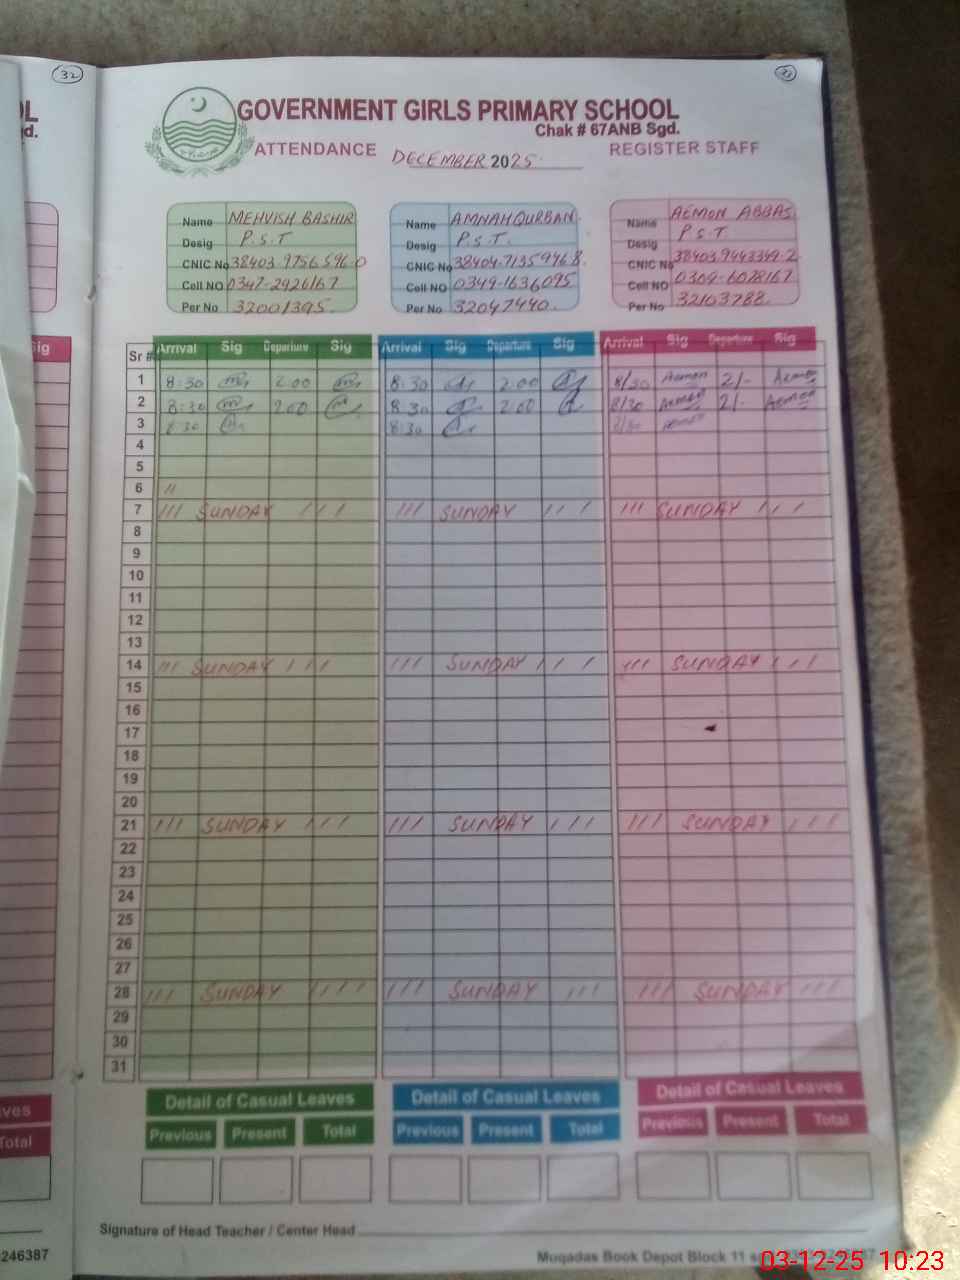 32
GOVERNMENT GIRLS PRIMARY SCHOOL
Chak # 67ANB Sgd.
ATTENDANCE DECEMBER 2025 REGISTER STAFF
Name MEHVISH BASHIR
Desig P.S.T
CNIC No
Cell NO 0347-2926167
Per No 32001395
Name AMNAH QURBAN
Desig P.S.T.
CNIC No 38404-7135946 8
Cell NO 0349-1636095
Per No 32047440
Name AEMON ABBAS
Desig P.S.T
CNIC No 38403.9443349-2
Cell NO 0309-6078167
Per No 32103788
Sr # Arrival Sig Departure Sig Arrival Sig Departure Sig Arrival Sig Departure Sig
1 8:30 2:00 8:30 2:00 8/30 Aemon 2/- Aemon
2 8:30 2:00 8:30 2:00 8/30 Aemon 2/- Aemon
3 8:30 8:30 8/30 Aemon
4
5
6 //
7 /// SUNDAY /// /// SUNDAY /// /// SUNDAY ///
8
9
10
11
12
13
14 /// SUNDAY /// /// SUNDAY /// /// SUNDAY ///
15
16
17
18
19
20
21 /// SUNDAY /// /// SUNDAY /// /// SUNDAY ///
22
23
24
25
26
27
28 /// SUNDAY //// /// SUNDAY /// /// SUNDAY ///
29
30
31
Detail of Casual Leaves Detail of Casual Leaves Detail of Casual Leaves
Previous Present Total Previous Present Total Previous Present Total
Signature of Head Teacher / Center Head
Muqadas Book Depot Block 11
246387
03-12-25 10:23